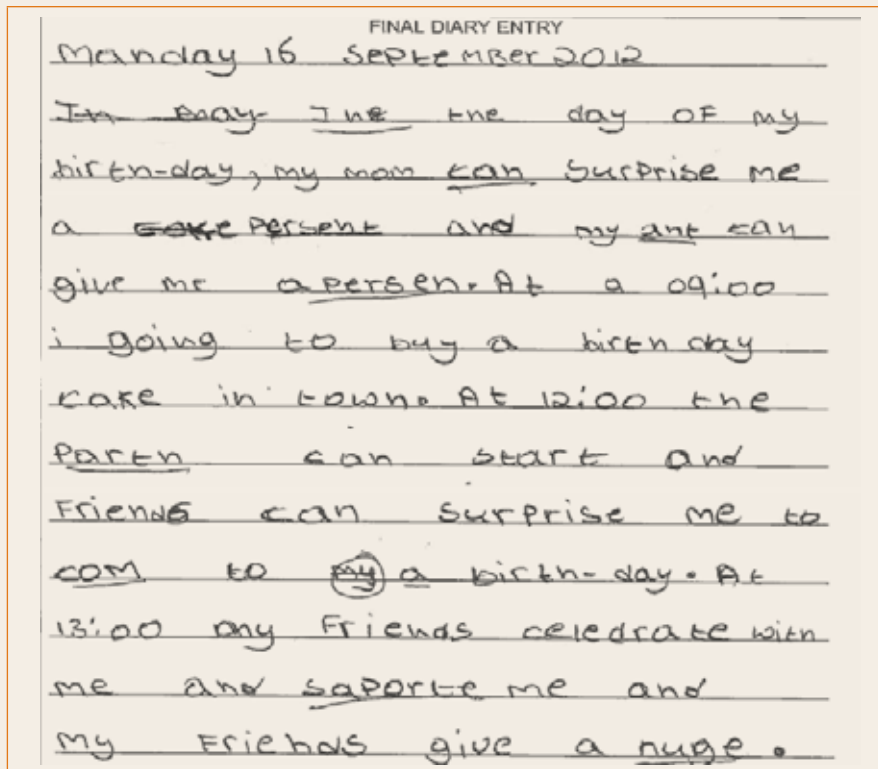 FINAL DIARY ENTRY
Manday 16 September 2012
In may Ine the day of my
birth-day, my mom can surprise me
a cake persent and my ant can
give me a persen. At a 09:00
i going to buy a birth day
cake in town. At 12:00 the
Parth can start and
Friends can surprise me to
com to my a birth-day. At
13:00 my Friends celedrate with
me and saporte me and
my Friends give a huge.